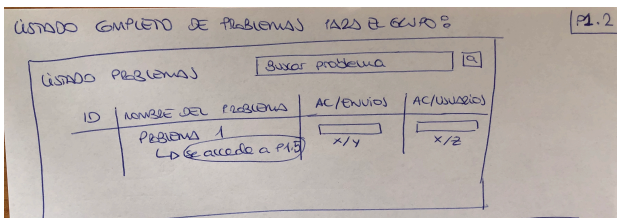 LISTADO COMPLETO DE PROBLEMAS PARA EL GRUPO:
P1.2
LISTADO PROBLEMAS
Buscar problema
ID
NOMBRE DEL PROBLEMA
AC/ENVIOS
AC/USUARIOS
PROBLEMA 1
se accede a P1.5
X/Y
X/Z